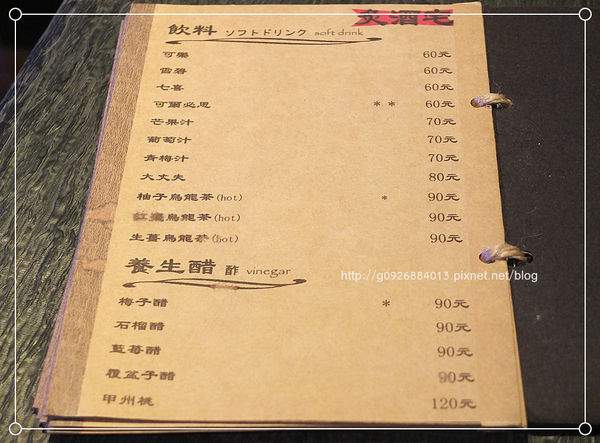 炙酒宅
飲料 ソフトドリンク soft drink
可樂 60元
雪碧 60元
七喜 60元
可爾必思 ** 60元
芒果汁 70元
葡萄汁 70元
青梅汁 70元
大丈夫 80元
柚子烏龍茶(hot) * 90元
紅棗烏龍茶(hot) 90元
生薑烏龍茶(hot) 90元
養生醋 酢 vinegar
http://g0926884013.pixnet.net/blog
梅子醋 * 90元
石榴醋 90元
藍莓醋 90元
覆盆子醋 90元
甲州桃 120元